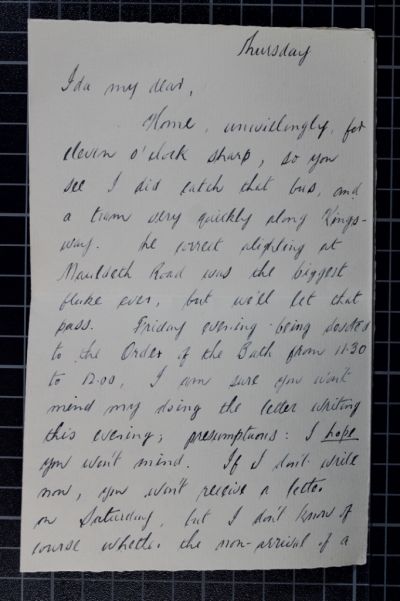 Thursday
Ida my dear,
Home, unwillingly, for
eleven o'clock sharp, so you
see I did catch that bus, and
a tram very quickly along Kings-
way. The correct alighting at
Mauldeth Road was the biggest
fluke ever, but we'll let that
pass. Friday evening being devoted
to the Order of the Bath from 11.30
to 12.00, I am sure you won't
mind my doing the letter writing
this evening; presumptious: I hope
you won't mind. If I don't write
now, you won't receive a letter
on Saturday, but I don't know of
course whether the non-arrival of a